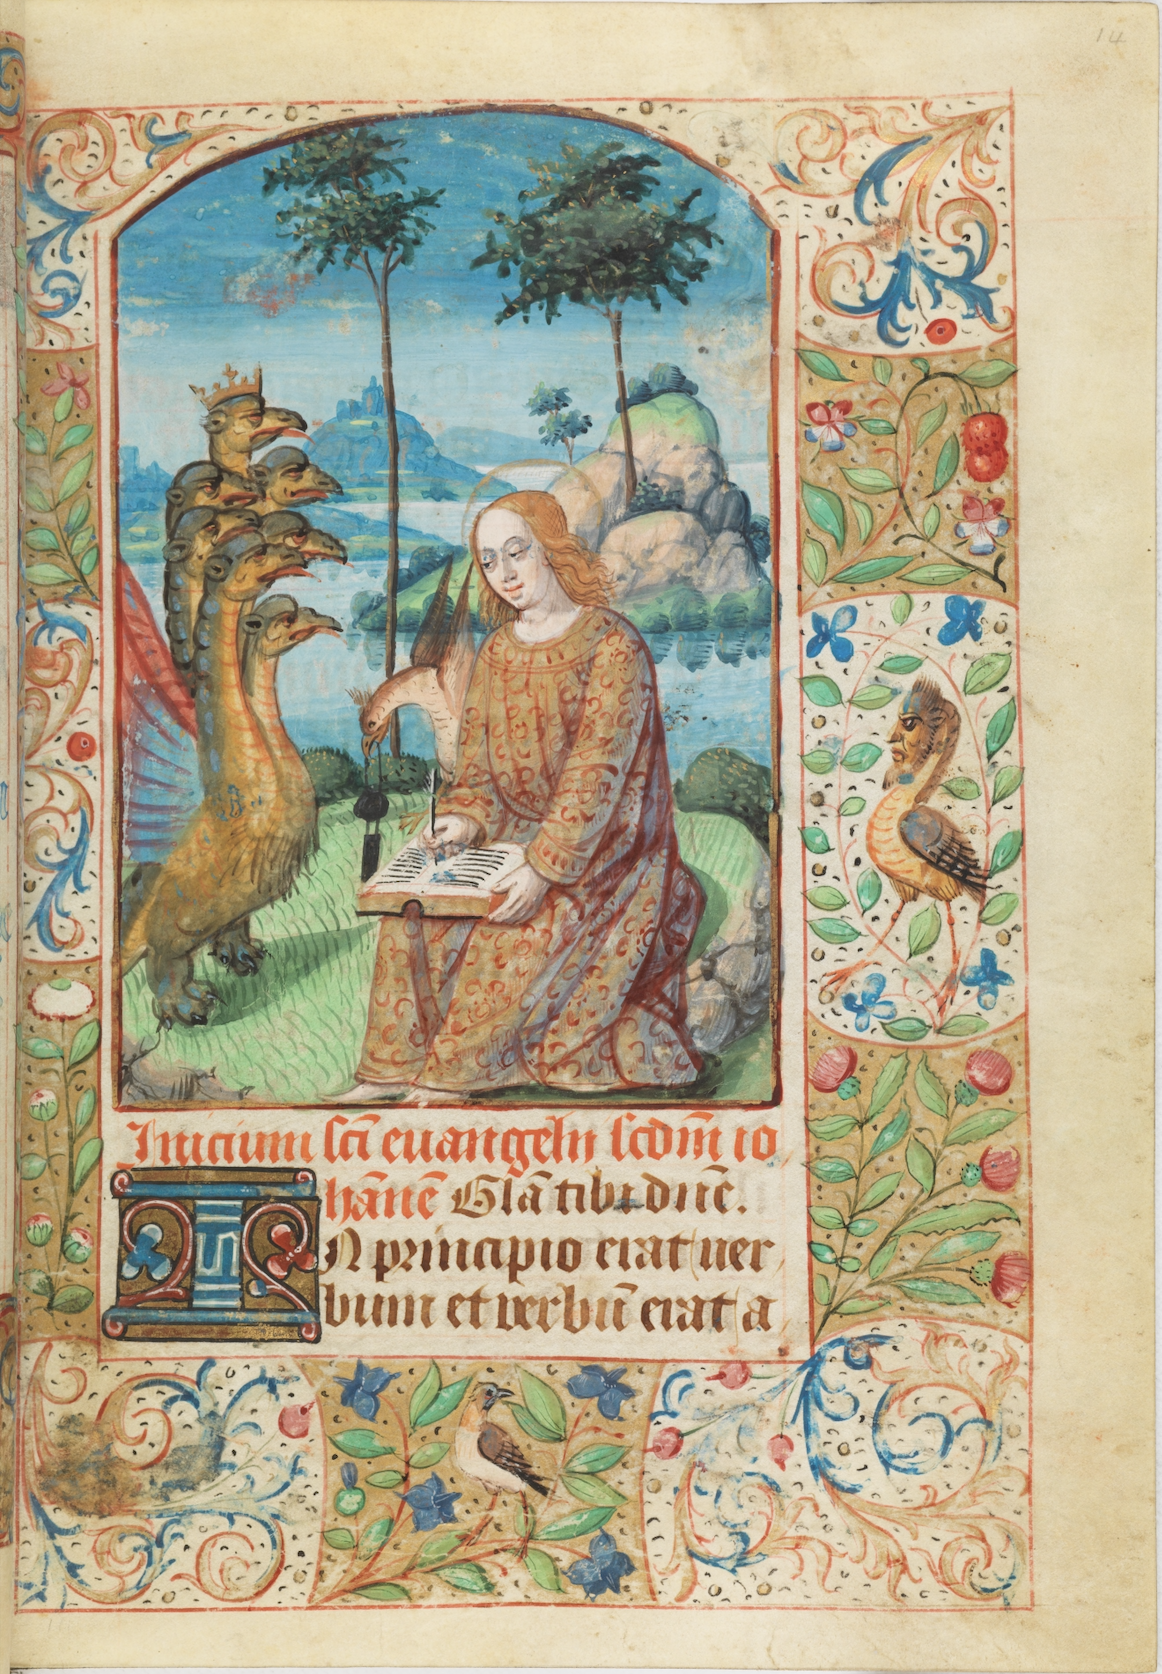 14
Inicium scī euangelii scdm̄ io
hānē Glā tibi dn̄e.
IN principio erat uer
bum et verbū erat a